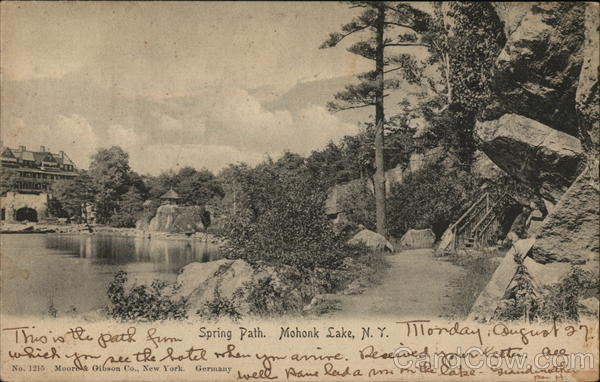 Spring Path. Mohonk Lake, N.Y.
Monday, August 27
This is the path from
which you see the hotel when you arrive. Received your letter
No. 1215 Moore & Gibson Co., New York. Germany
well have had a on the lake
CardCow.com